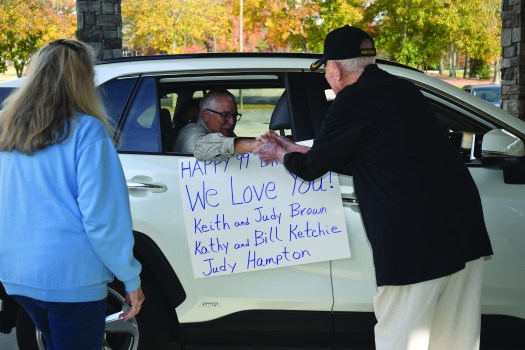 HAPPY 99
We Love You!
Keith and Judy Brown
Kathy and Bill Ketchie
Judy Hampton